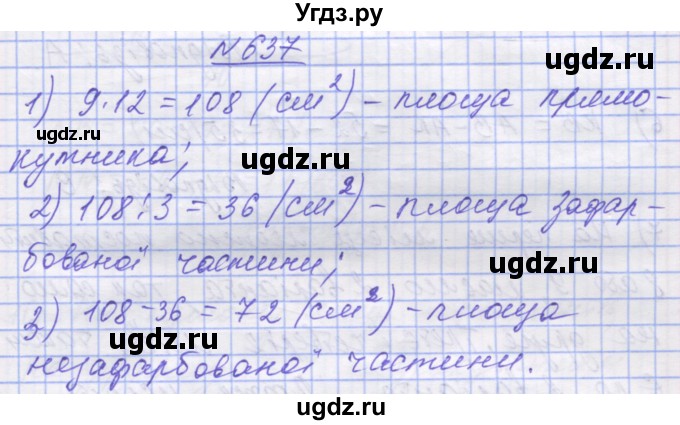 Угдз.ру
№637
1) 9·12 = 108 (см²) – площа прямо-
кутника;
ugdz.ru ugdz.ru
2) 108:3 = 36 (см²) – площа зафар-
бованої частини;
ugdz.ru ugdz.ru
3) 108-36 = 72 (см²) – площа
незафарбованої частини.
ugdz.ru ugdz.ru